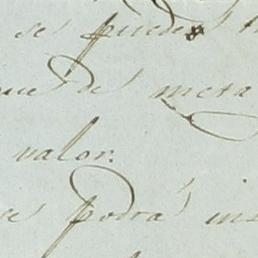 se puede
que de meta
valor.
podrá in